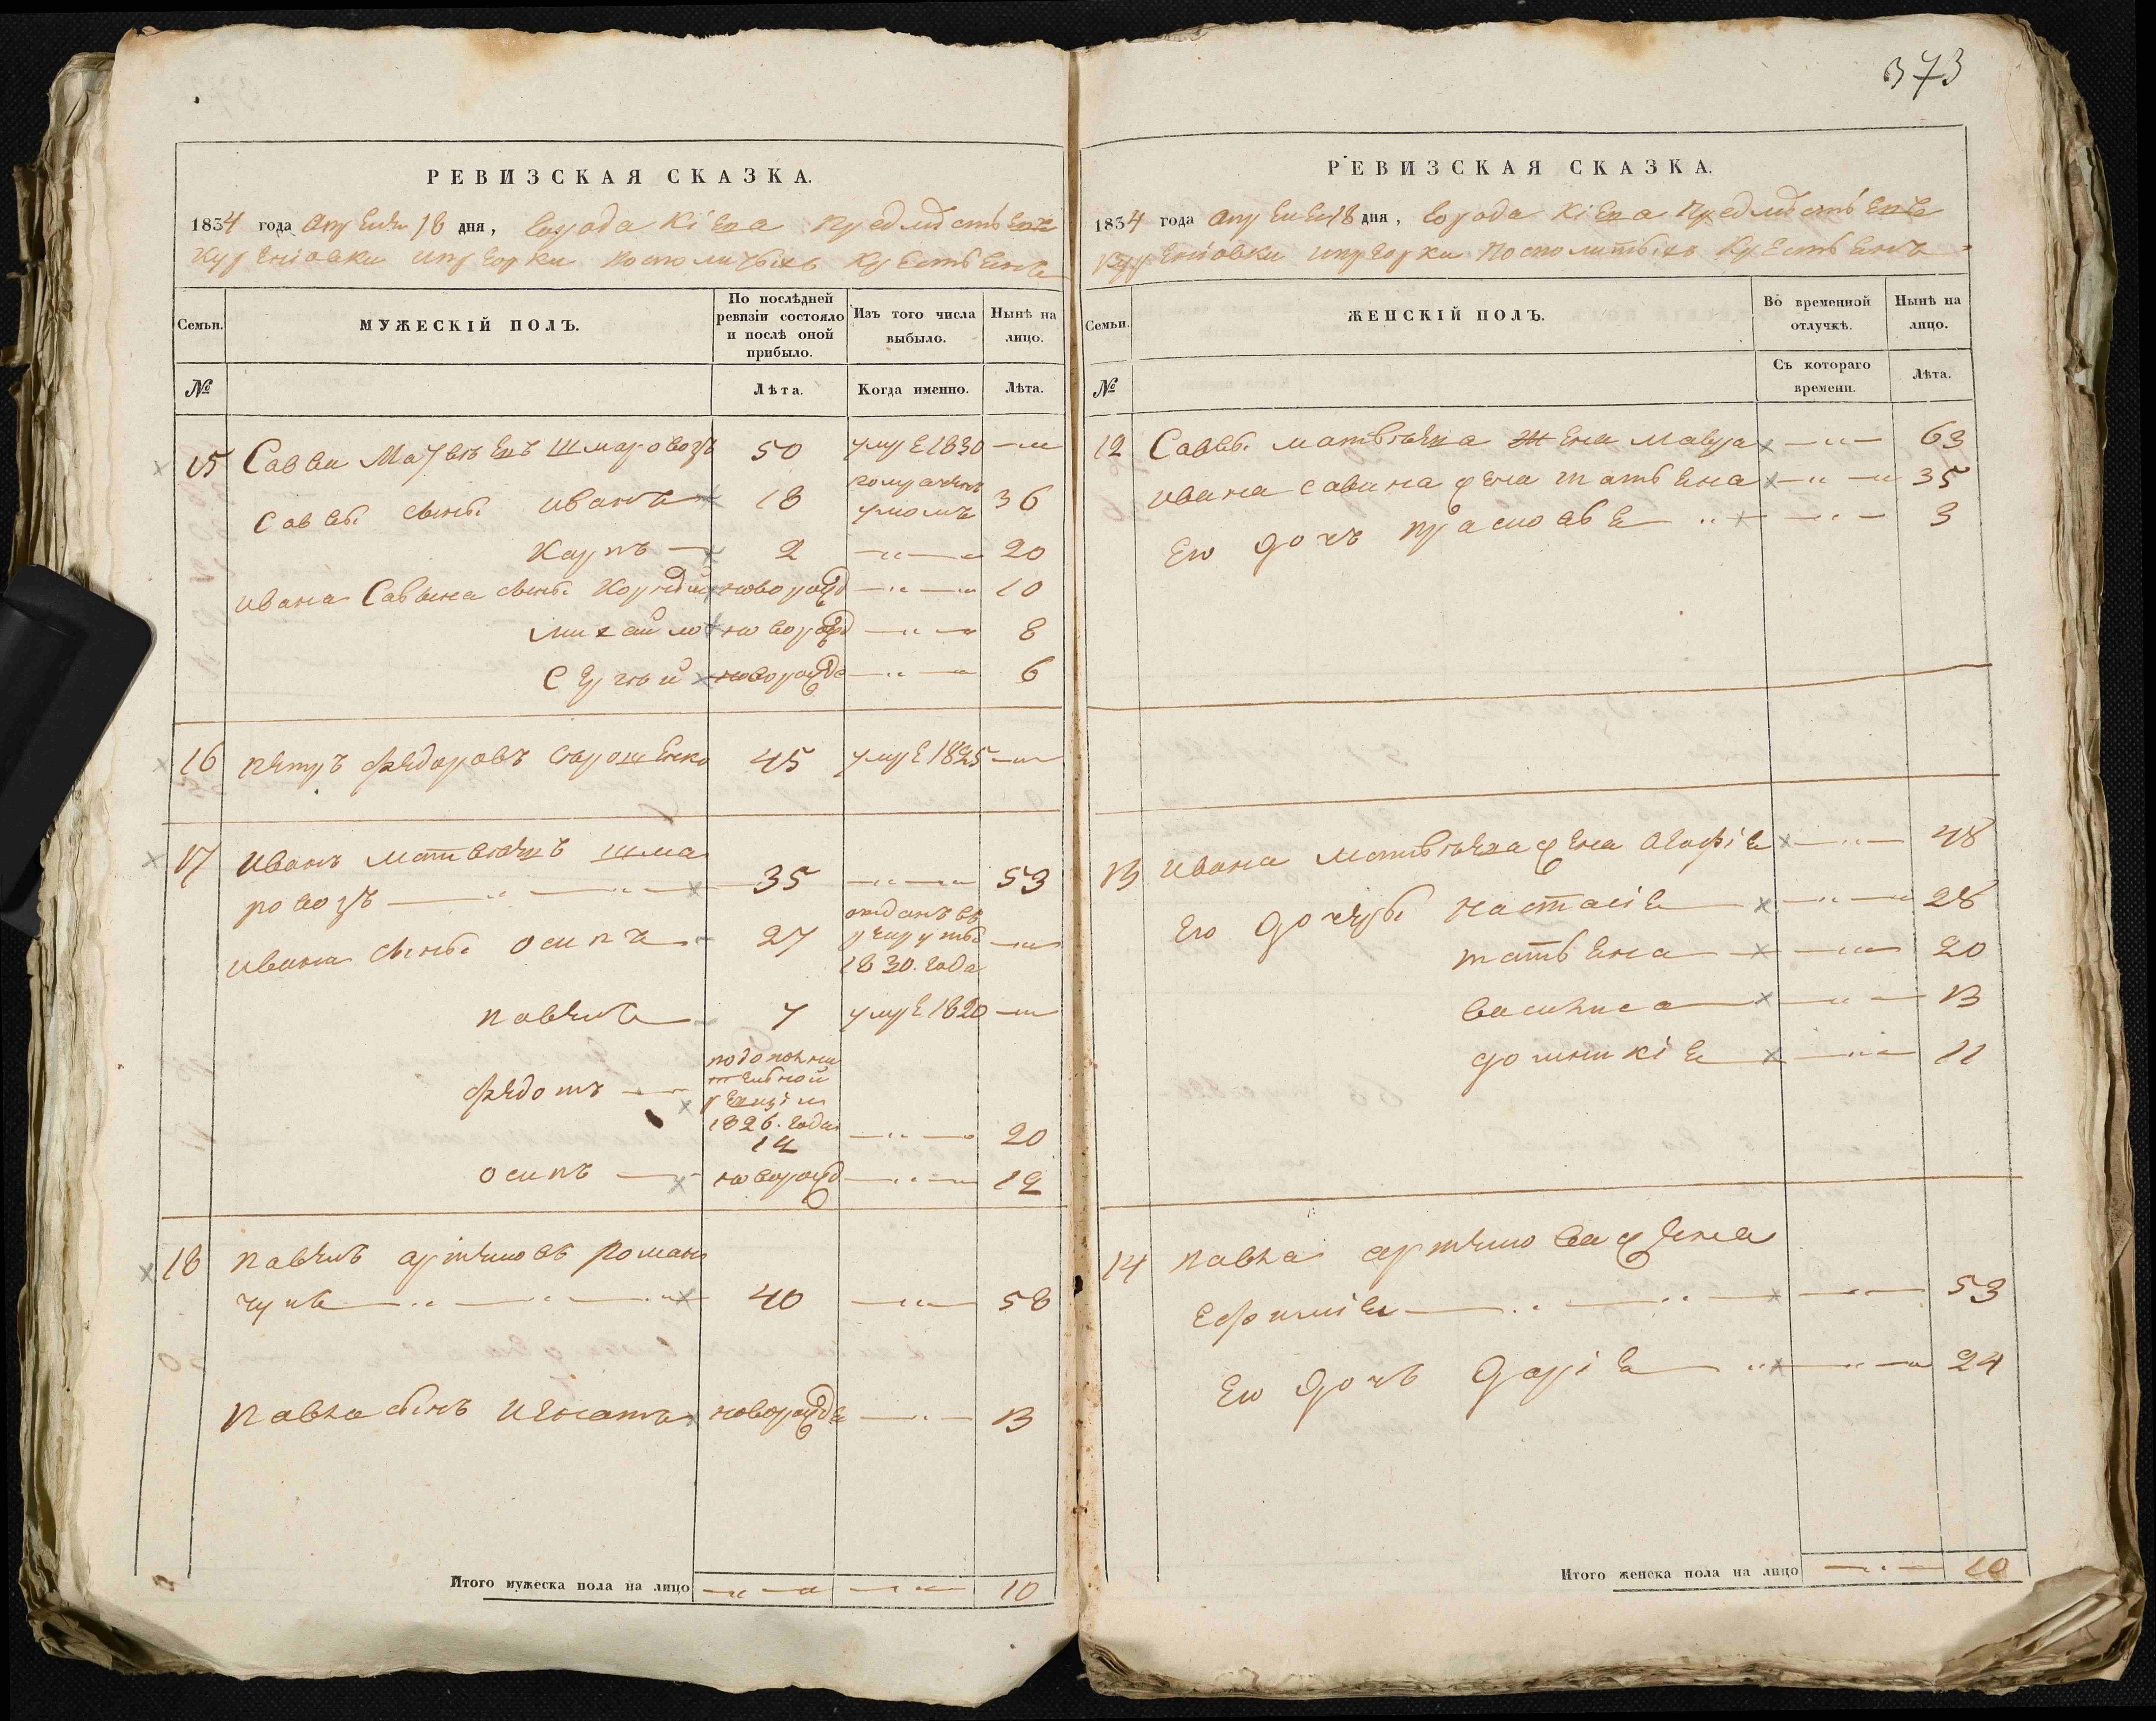 373
РЕВИЗСКАЯ СКАЗКА.
1834 года Апреля 18 дня, города Кіева предмѣстьевъ
Куреніовки иприорки посполитыхъ крестьянъ
Семьи.
МУЖЕСКІЙ ПОЛЪ.
По послѣдней ревизіи состояло и послѣ оной прибыло.
Изъ того числа выбыло.
Нынѣ на лицо.
№
Лѣта.
Когда именно.
Лѣта.
15 Савва Матвѣевъ Шмаровозъ 50 умре 1830
Саввы сынъ Иванъ 18 умомъ 36
Карпъ 2 20
Ивана Саввина сыны Корнѣй новорожд 10
михайло новорожд 8
Сергѣй новорожде 6
16 Петръ Федоровъ 45 умре 1825
17 Иванъ матвѣевъ шма
ровозъ 35 53
Ивана сыны осипъ 27 отданъ въ рекруты 1830. года
Павелъ 7 умре 1820
Федотъ подополни тельной ревизіи 1826. года 12 20
осипъ новорожд 12
18 Павелъ артемовъ Роман
чукъ 40 58
Павла сынъ Игнатъ новорожде 13
Итого мужеска пола на лицо 10
РЕВИЗСКАЯ СКАЗКА.
1834 года Апреля 18 дня, города Кіева предмѣстьевъ
Куреніовки иприорки посполитыхъ крестьянъ
Семьи.
ЖЕНСКІЙ ПОЛЪ.
Во временной отлучкѣ.
Нынѣ на лицо.
№
Съ котораго времени.
Лѣта.
12 Саввы матвѣева жена мавра 63
ивана савина жена татьяна 35
Его дочь прасковья 3
13 ивана матвѣева жена агафія 48
Его дочеры настасія 28
татьяна 20
василиса 13
домникія 11
14 Павла артемова жена
Ефимія 53
Его дочь Дарія 24
Итого женска пола на лицо 10